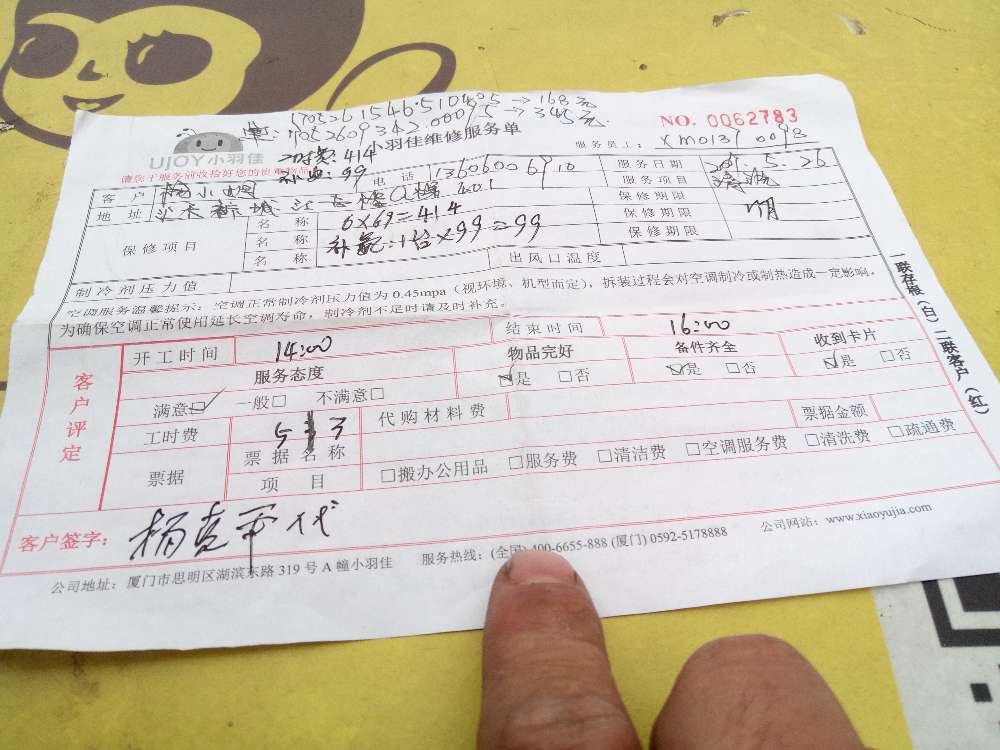 170526154651040 5→168元
单: 17052609342 00095→345元
NO. 0062783
UJOY小羽佳
小羽佳维修服务单
414
服务员工: XM0137 0098
请您于服务前收拾好您的贵重物品
补 : 99
客户
电话 13606006910
服务日期 5.26
地址 401
服务项目 清洗
保修项目
名称 6×69=414
保修期限
名称 补 : 1台×99=99
保修期限
名称
保修期限
制冷剂压力值
出风口温度
空调服务温馨提示: 空调正常制冷剂压力值为0.45mpa (视环境、机型而定), 拆装过程会对空调制冷或制热造成一定影响,
为确保空调正常使用延长空调寿命, 制冷剂不足时请及时补充。
一联存根(白) 二联客户(红)
客户评定
开工时间 14:00
结束时间 16:00
服务态度
物品完好
备件齐全
收到卡片
满意☑ 一般□ 不满意□
☑是 □否
☑是 □否
☑是 □否
工时费 513
代购材料费
票据金额
票据
票据名称
项目
□搬办公用品 □服务费 □清洁费 □空调服务费 □清洗费 □疏通费
客户签字: 杨 代
公司地址: 厦门市思明区湖滨东路319号A幢小羽佳 服务热线: (全国) 400-6655-888 (厦门) 0592-5178888 公司网站: www.xiaoyujia.com